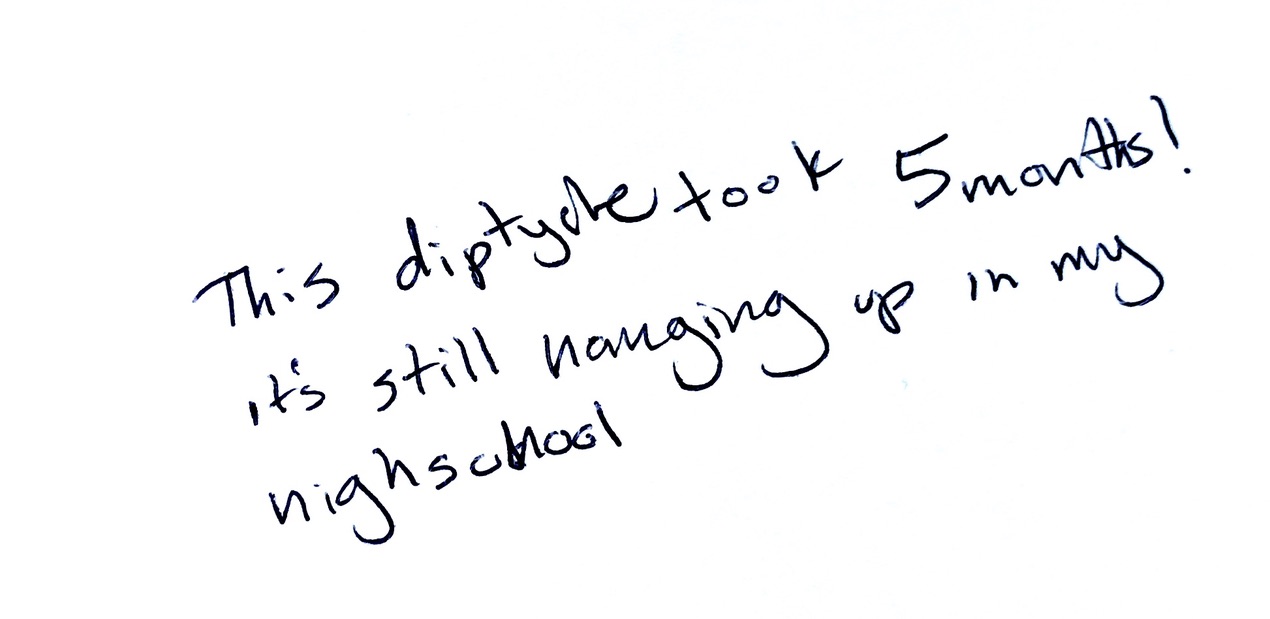 This diptyche took 5 months!
it's still hanging up in my
highschool